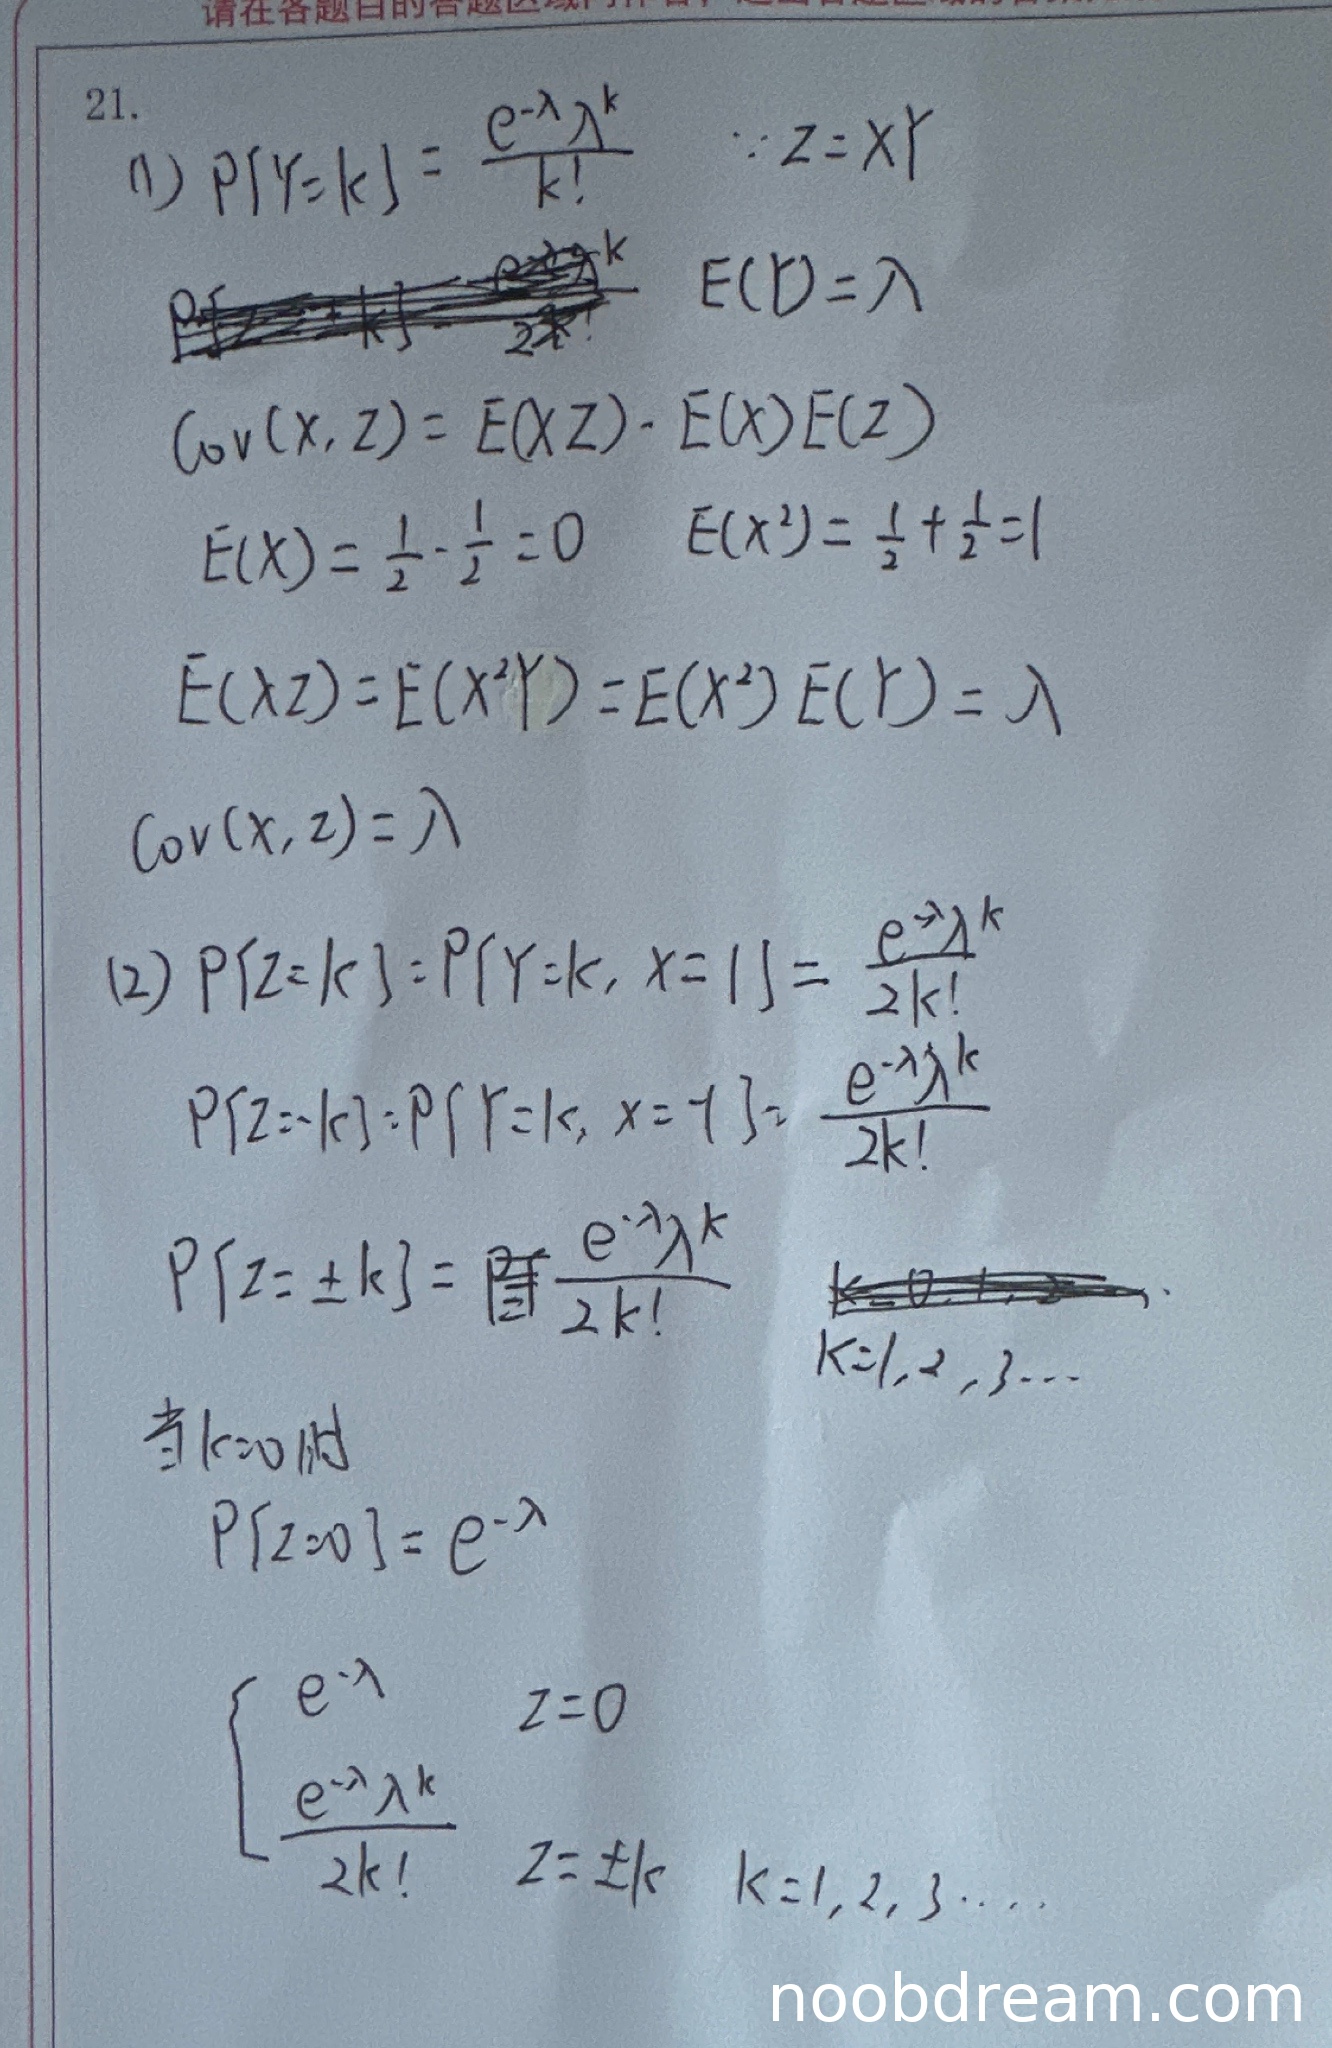 21.
(1) P{Y=k} = \frac{e^{-λ}λ^k}{k!} ∵ Z=XY
E(Y)=λ
Cov(X,Z)=E(XZ)-E(X)E(Z)
E(X)=\frac{1}{2}-\frac{1}{2}=0 E(X²)=\frac{1}{2}+\frac{1}{2}=1
E(XZ)=E(X²Y)=E(X²)E(Y)=λ
Cov(X,Z)=λ
(2) P{Z=k}=P{Y=k, X=1}=\frac{e^{-λ}λ^k}{2k!}
P{Z=-k}=P{Y=k, X=-1}=\frac{e^{-λ}λ^k}{2k!}
P{Z=±k}=\frac{e^{-λ}λ^k}{2k!}
k=1,2,3...
当k=0时
P{Z=0}=e^{-λ}
{ e^{-λ} Z=0
\frac{e^{-λ}λ^k}{2k!} Z=±k k=1,2,3....
noobdream.com